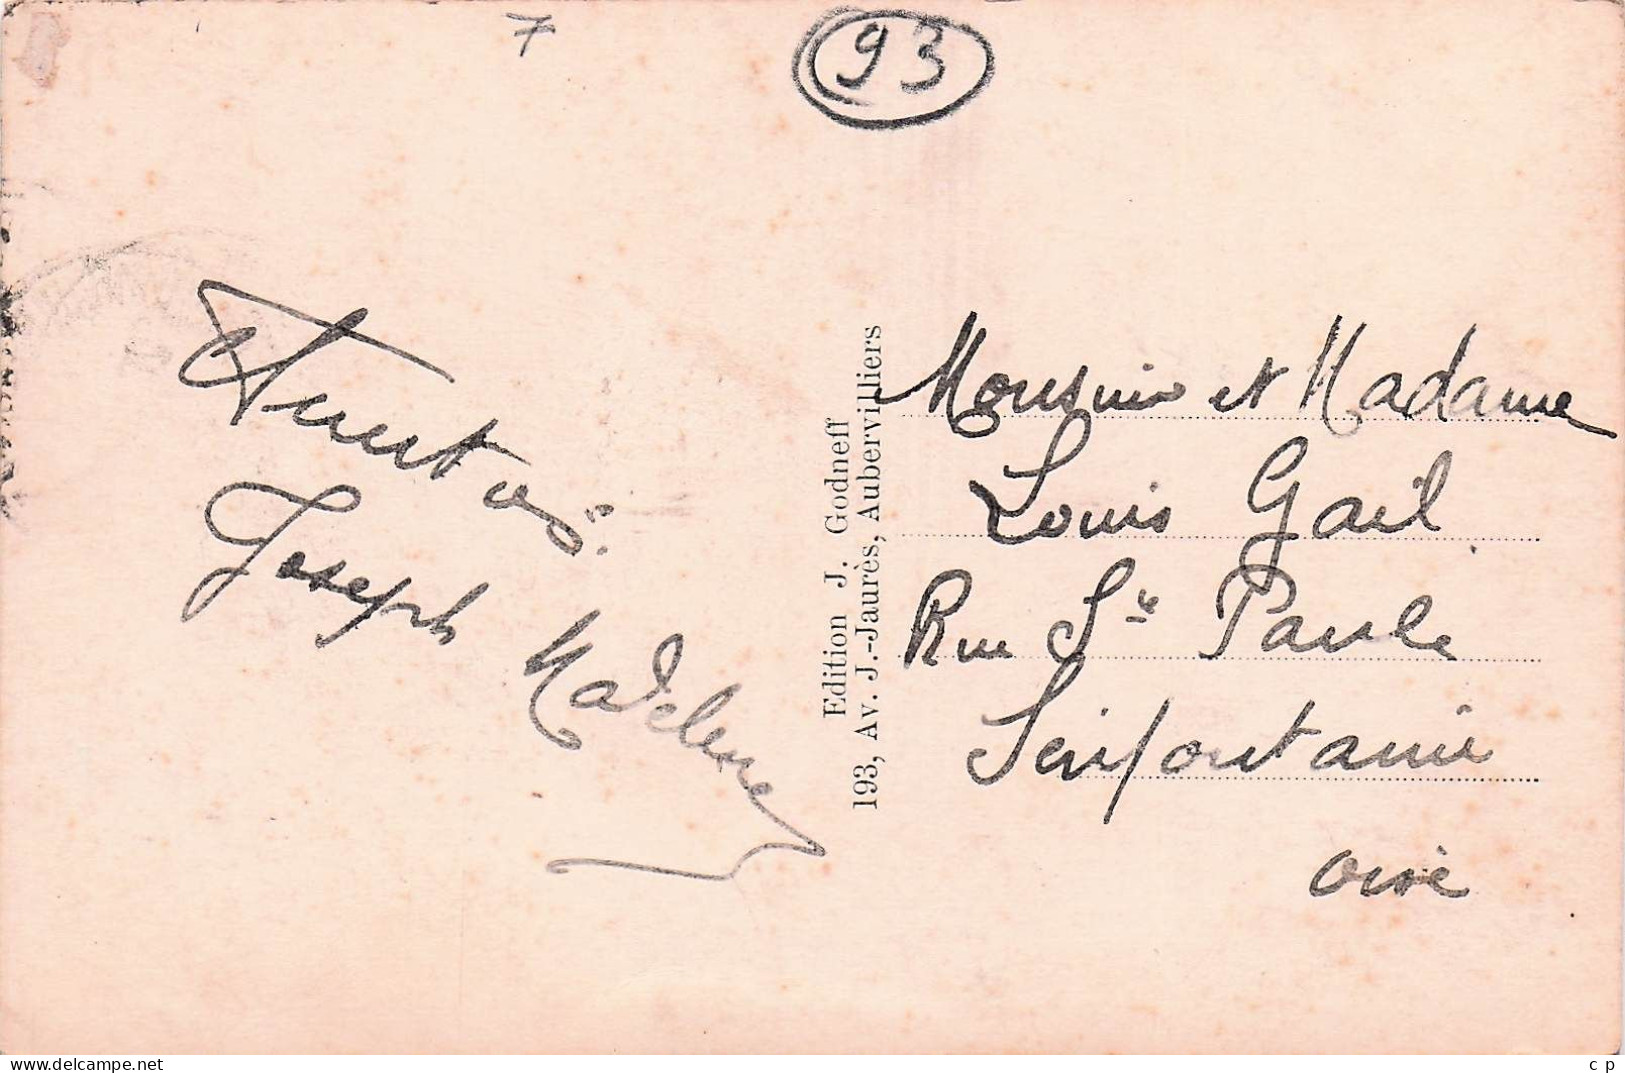 7
93
Amitiés
Joseph Madeleine
Edition J. Godneff
193, Av. J.-Jaurès, Aubervilliers
Monsieur et Madame
Louis Gail
Rue Ste Paule
Serifontaine
Oise
www.delcampe.net
c p